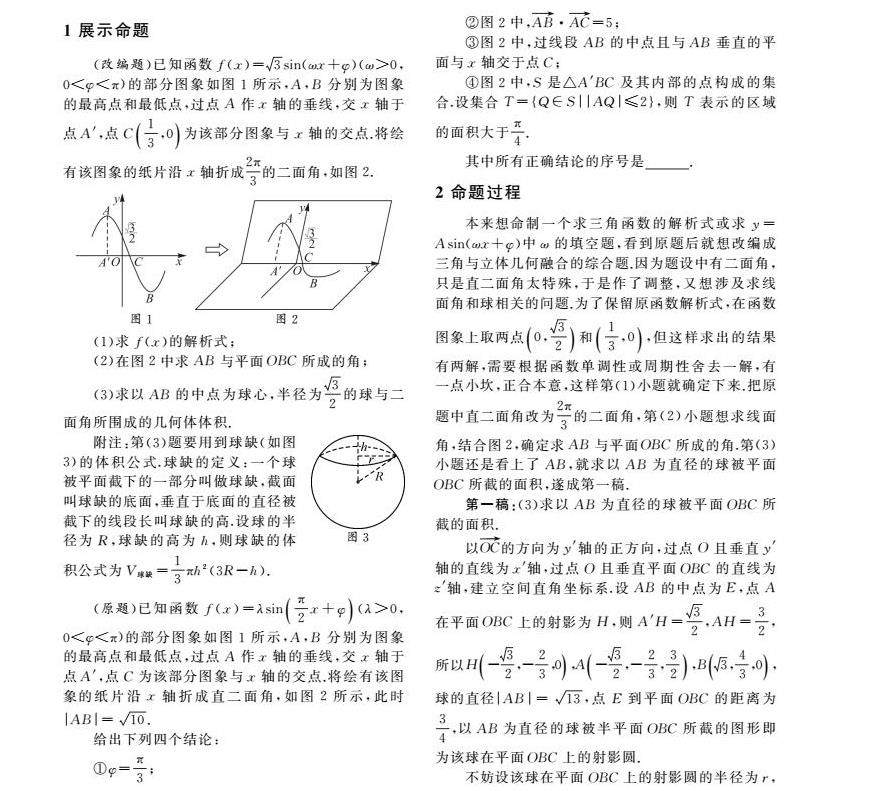 1 展示命题
(改编题)已知函数 f(x)=√3sin(ωx+φ)(ω>0,
0<φ<π)的部分图象如图 1 所示,A,B 分别为图象
的最高点和最低点,过点 A 作 x 轴的垂线,交 x 轴于
点 A′,点 C(1/3,0)为该部分图象与 x 轴的交点.将绘
有该图象的纸片沿 x 轴折成2π/3的二面角,如图 2.
y
A
√3/2
A′ O C x
B
图 1
y
A
√3/2
C
A′ O x
B
图 2
(1)求 f(x)的解析式;
(2)在图 2 中求 AB 与平面 OBC 所成的角;
(3)求以 AB 的中点为球心,半径为√3/2的球与二
面角所围成的几何体体积.
附注:第(3)题要用到球缺(如图
3)的体积公式.球缺的定义:一个球
被平面截下的一部分叫做球缺,截面
叫球缺的底面,垂直于底面的直径被
截下的线段长叫球缺的高.设球的半
径为 R,球缺的高为 h,则球缺的体
积公式为 V球缺=1/3πh²(3R−h).
h
r
R
图 3
(原题)已知函数 f(x)=λsin(π/2x+φ)(λ>0,
0<φ<π)的部分图象如图 1 所示,A,B 分别为图象
的最高点和最低点,过点 A 作 x 轴的垂线,交 x 轴于
点 A′,点 C 为该部分图象与 x 轴的交点.将绘有该图
象的纸片沿 x 轴折成直二面角,如图 2 所示,此时
|AB|=√10.
给出下列四个结论:
①φ=π/3;
②图 2 中,AB→·AC→=5;
③图 2 中,过线段 AB 的中点且与 AB 垂直的平
面与 x 轴交于点 C;
④图 2 中,S 是△A′BC 及其内部的点构成的集
合.设集合 T={Q∈S||AQ|≤2},则 T 表示的区域
的面积大于π/4.
其中所有正确结论的序号是______.
2 命题过程
本来想命制一个求三角函数的解析式或求 y=
Asin(ωx+φ)中 ω 的填空题,看到原题后就想改编成
三角与立体几何融合的综合题.因为题设中有二面角,
只是直二面角太特殊,于是作了调整,又想涉及求线
面角和球相关的问题.为了保留原函数解析式,在函数
图象上取两点(0,√3/2)和(1/3,0),但这样求出的结果
有两解,需要根据函数单调性或周期性舍去一解,有
一点小坎,正合本意,这样第(1)小题就确定下来.把原
题中直二面角改为2π/3的二面角,第(2)小题想求线面
角,结合图 2,确定求 AB 与平面OBC 所成的角.第(3)
小题还是看上了 AB,就求以 AB 为直径的球被平面
OBC 所截的面积,遂成第一稿.
第一稿:(3)求以 AB 为直径的球被平面 OBC 所
截的面积.
以OC→的方向为 y′轴的正方向,过点 O 且垂直 y′
轴的直线为 x′轴,过点 O 且垂直平面 OBC 的直线为
z′轴,建立空间直角坐标系.设 AB 的中点为 E,点 A
在平面 OBC 上的射影为 H,则 A′H=√3/2,AH=3/2,
所以H(−√3/2,−2/3,0),A(−√3/2,−2/3,3/2),B(√3,4/3,0),
球的直径|AB|=√13,点 E 到平面 OBC 的距离为
3/4,以 AB 为直径的球被半平面 OBC 所截的图形即
为该球在平面 OBC 上的射影圆.
不妨设该球在平面 OBC 上的射影圆的半径为 r,